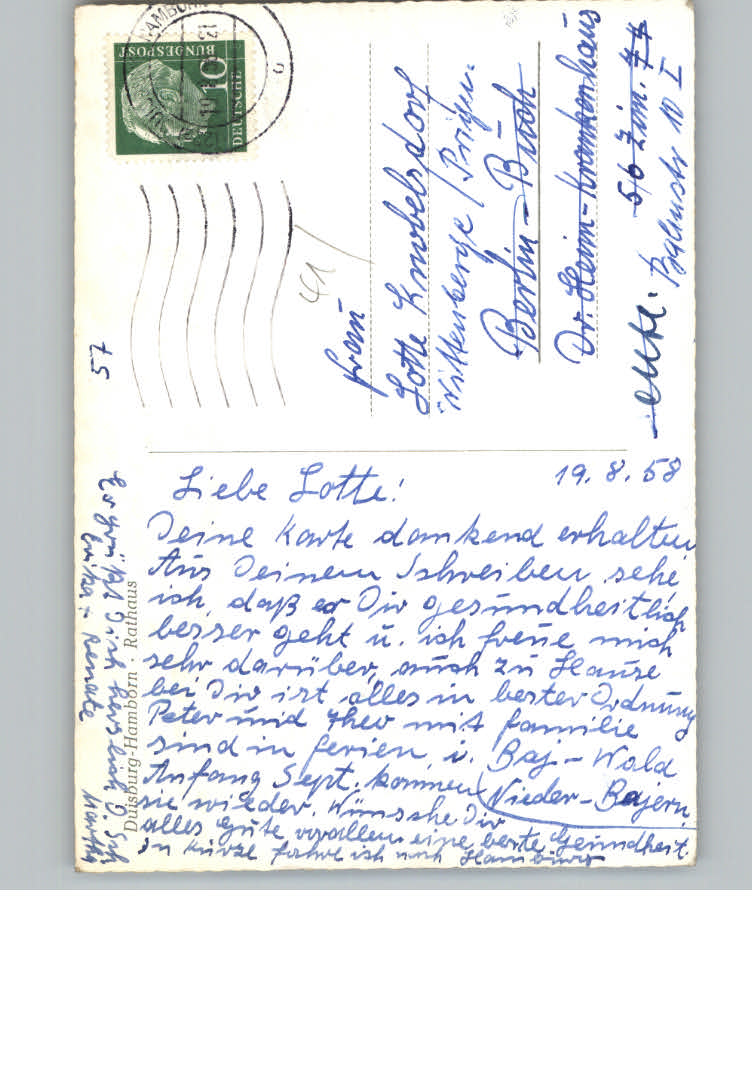 19.8.58
Liebe Lotte!
Deine Karte dankend erhalten
Aus Deinem Schreiben sehe
ich, daß es Dir gesundheitlich
besser geht u. ich freue mich
sehr darüber, auch zu Hause
bei Dir ist alles in bester Ordnung
Peter und Theo mit Familie
sind in Ferien i. Baj-Wald
Anfang Sept. kommen Nieder-Bajern.
sie wieder. Wünsche Dir
alles Gute vorallem eine beste Gesundheit.
In Kürze fahre ich nach Hamburg
Es grüßt Dich herzlich D. Sch
Erika u. Renate Martha
Duisburg-Hamborn · Rathaus
57
41
Frau
Lotte Knobelsdorf
Wittenberge / Prign.
Berlin-Buch
Dr. Heim-Krankenhaus
5/6 Zim. 77
10 I
DEUTSCHE
BUNDESPOST
10
HAMBORN